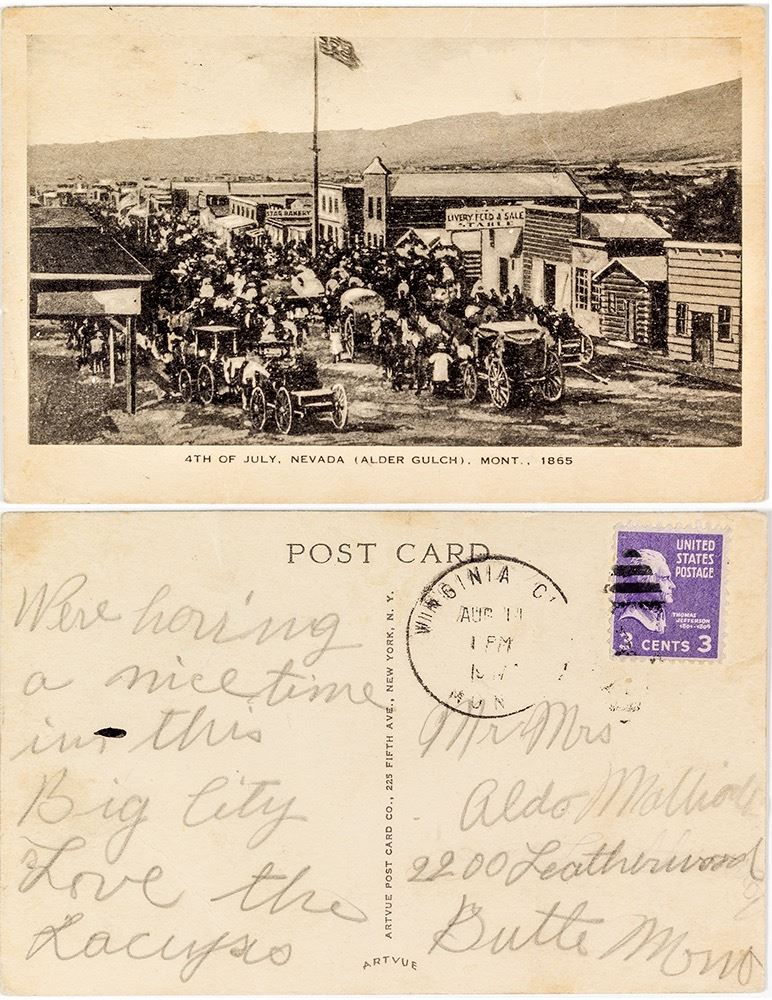 STAR BAKERY
LIVERY FEED & SALE
STABLE
4TH OF JULY, NEVADA (ALDER GULCH), MONT., 1865
POST CARD
Were having
a nice time
in this
Big City
Love the
ARTVUE POST CARD CO., 225 FIFTH AVE., NEW YORK, N. Y.
ARTVUE
VIRGINIA C
AUG 11
1 PM
MON
UNITED
STATES
POSTAGE
THOMAS
JEFFERSON
1801-1809
3 CENTS 3
Mr Mrs
Aldo
2200 Leatherwood
Butte Mont